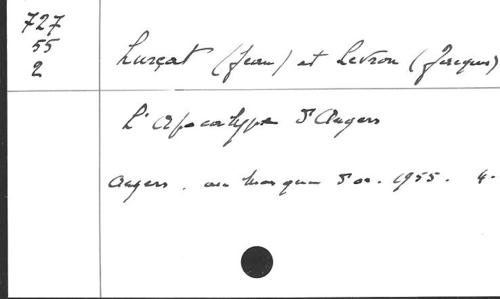 727
55
2
Lurçat (Jean) et Levron (Jacques)
L'Apocalypse d'Angers
Angers. au Masque d'or. 1955. 4.